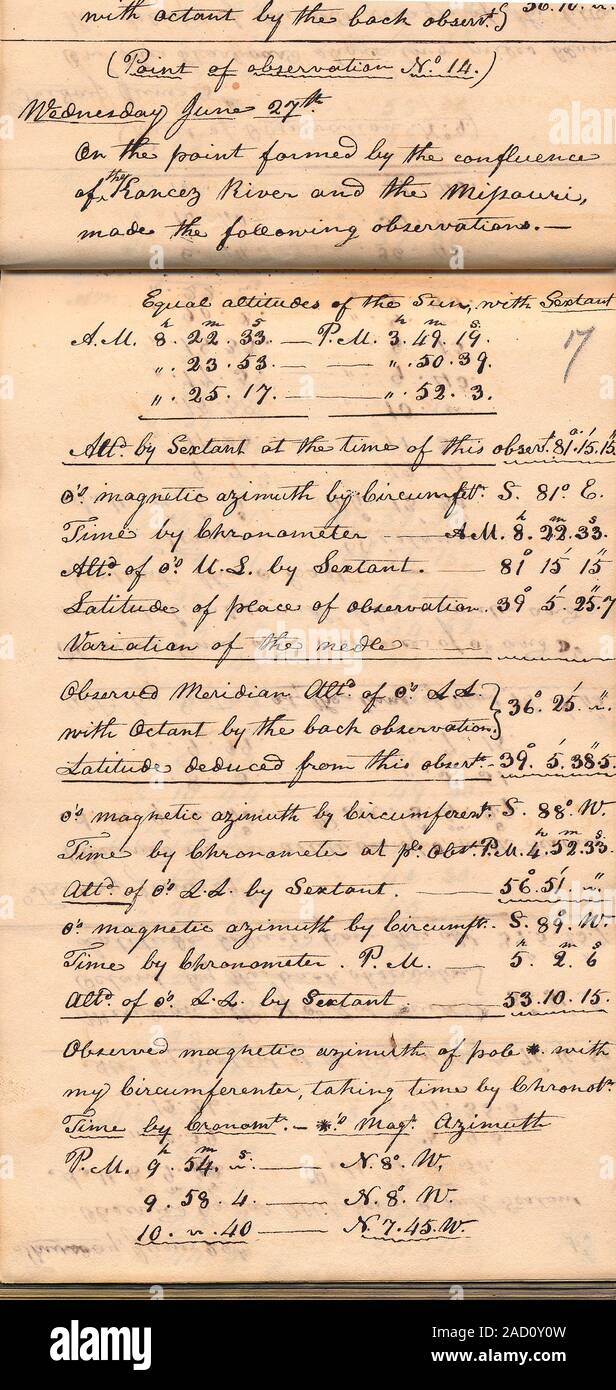 with octant by the back observt.}
(Point of observation No. 14.)
Wednesday June 27th.
On the point formed by the confluence
of the Kancez River and the Missouri,
made the following observations.—
Equal altitudes of the Sun, with Sextant
17
h m s h m s
A.M. 8. 22. 33. — P.M. 3. 49. 19.
". 23. 53. — — ". 50. 39.
". 25. 17. — — ". 52. 3.
Altd. by Sextant at the time of this obsert. 81°. 15.' 15"
☉'s magnetic azimuth by Circumftr. S. 81° E.
h m s
Time by Chronometer — A.M. 8. 22. 33.
Altd. of ☉'s U.L. by Sextant. — 81° 15' 15"
Latitude of place of observation. 39° 5.' 25."7
Variation of the nedle
Observed Meridian Altd. of ☉'s L.L. } 36°. 25.' ".
with Octant by the back observation.
Latitude deduced from this obsert. - 39°. 5.' 38"5.
☉'s magnetic azimuth by Circumferentr. S. 88° W.
h m s
Time by Chronometer at ps. Obst. P.M. 4. 52. 33.
Altd. of ☉'s L.L. by Sextant. — 56°. 51.' ".
☉'s magnetic azimuth by Circumftr. S. 89° W.
h m s
Time by Chronometer. P.M. — 5. 2. 6
Altd. of ☉'s L.L. by Sextant. — 53. 10. 15.
Observed magnetic azimuth of pole * with
my Circumferenter, taking time by Chronotr.
Time by Cronomt. — *'s Magt. Azimuth
h m s
P.M. 9. 54. ". — N. 8°. W.
9. 58. 4. — N. 8°. W.
10. ". 40 — N. 7. 45. W.
alamy
Image ID: 2AD0Y0W
www.alamy.com